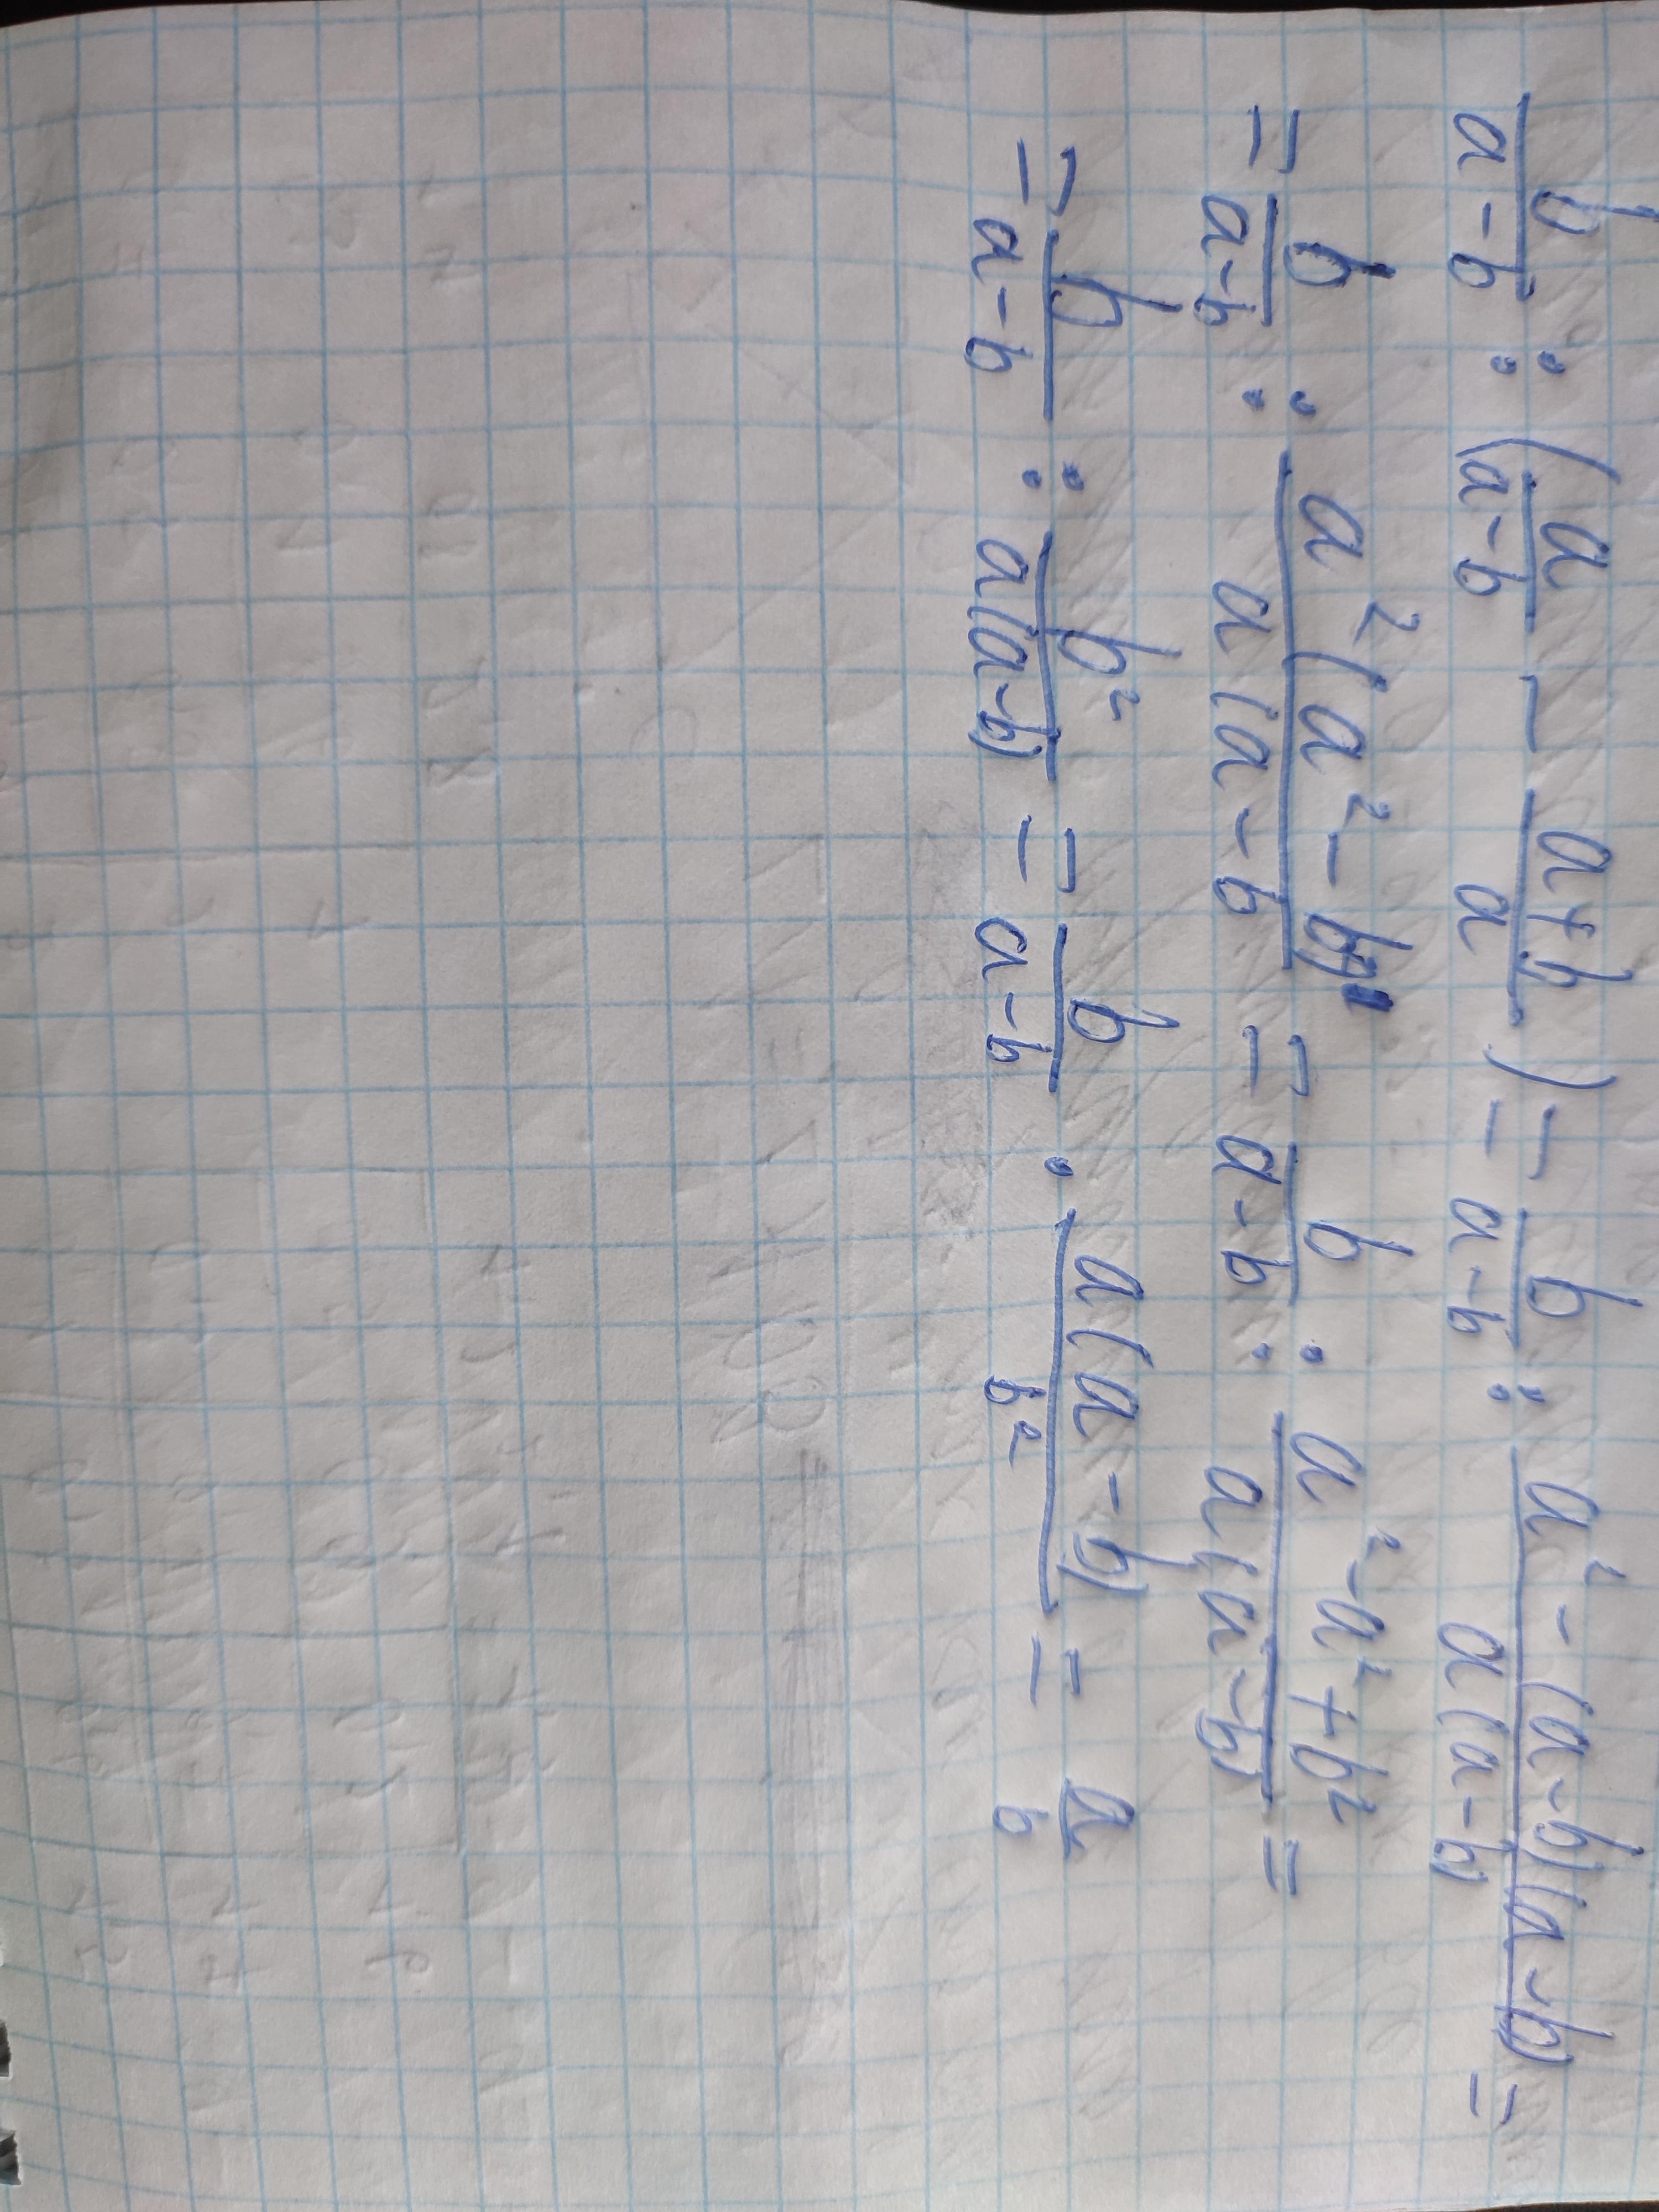 b/(a-b) : (a/(a-b) - (a+b)/a) = b/(a-b) : (a² - (a-b)(a-b))/(a(a-b)) =
= b/(a-b) : (a²(a²-b²)/(a(a-b) = b/(a-b) : (a²-a²+b²)/(a(a-b)) =
= b/(a-b) : b²/(a(a-b)) = b/(a-b) · a(a-b)/b² = a/b